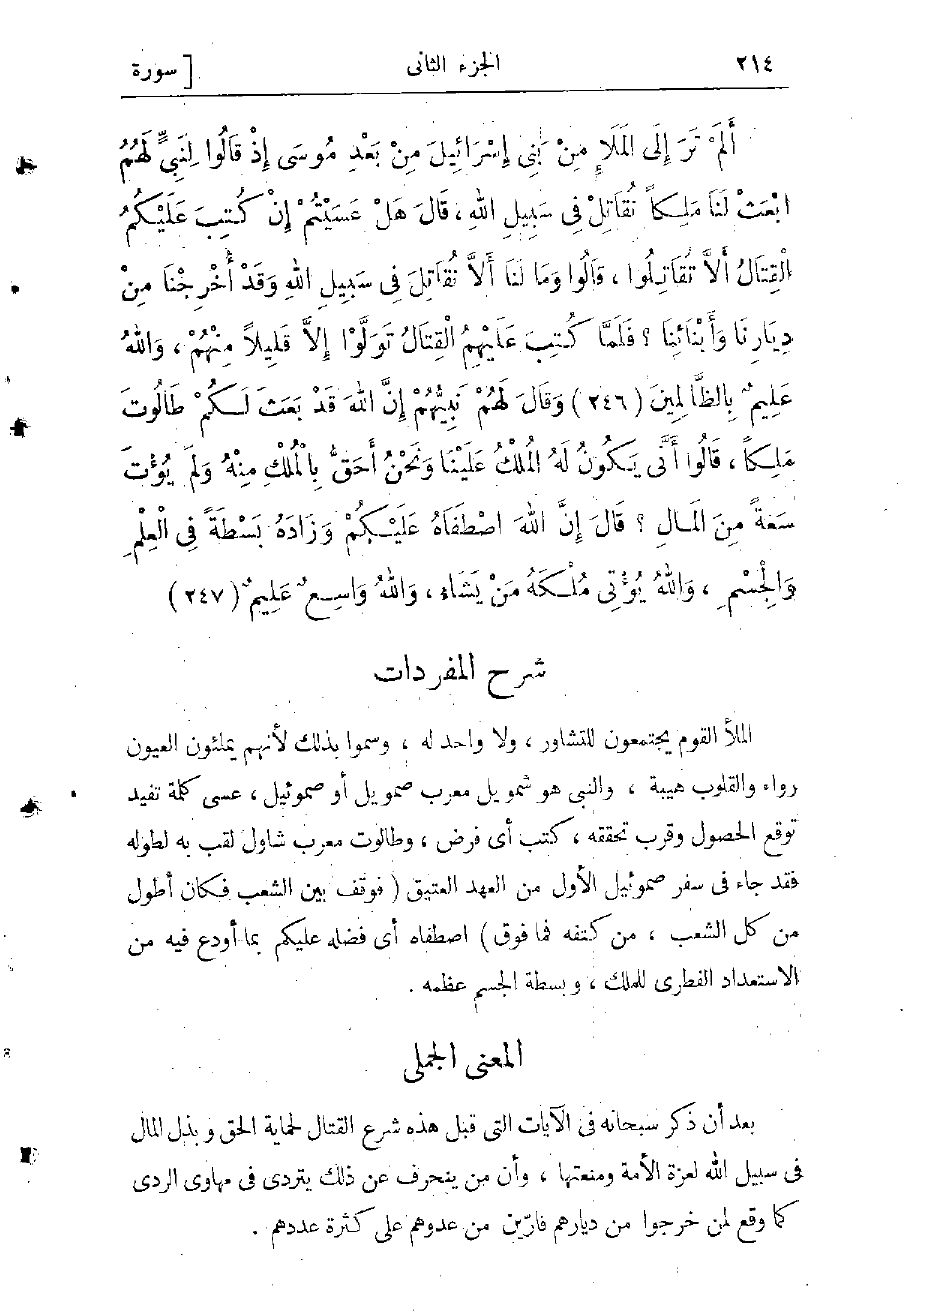 ٢١٤ الجزء الثانى [ سورة
أَلَمْ تَرَ إِلَى الْمَلَإِ مِنْ بَنِى إِسْرَائِيلَ مِنْ بَعْدِ مُوسَى إِذْ قَالُوا لِنَبِىٍّ لَهُمُ
ابْعَثْ لَنَا مَلِكاً نُقَاتِلْ فِى سَبِيلِ اللهِ ، قَالَ هَلْ عَسَيْتُمْ إِنْ كُتِبَ عَلَيْكُمُ
الْقِتَالُ أَلاَّ تُقَاتِلُوا ، قَالُوا وَمَا لَنَا أَلاَّ نُقَاتِلَ فِى سَبِيلِ اللهِ وَقَدْ أُخْرِجْنَا مِنْ
دِيَارِنَا وَأَبْنَائِنَا ؟ فَلَمَّا كُتِبَ عَلَيْهِمُ الْقِتَالُ تَوَلَّوْا إِلاَّ قَلِيلاً مِنْهُمْ ، وَاللهُ
عَلِيمٌ بِالظَّالِمِينَ (٢٤٦) وَقَالَ لَهُمْ نَبِيُّهُمْ إِنَّ اللهَ قَدْ بَعَثَ لَكُمْ طَالُوتَ
مَلِكاً ، قَالُوا أَنَّى يَكُونُ لَهُ الْمُلْكُ عَلَيْنَا وَنَحْنُ أَحَقُّ بِالْمُلْكِ مِنْهُ وَلَمْ يُؤْتَ
سَعَةً مِنَ الْمَالِ ؟ قَالَ إِنَّ اللهَ اصْطَفَاهُ عَلَيْكُمْ وَزَادَهُ بَسْطَةً فِى الْعِلْمِ
وَالْجِسْمِ ، وَاللهُ يُؤْتِى مُلْكَهُ مَنْ يَشَاءُ ، وَاللهُ وَاسِعٌ عَلِيمٌ (٢٤٧)
شرح المفردات
الملأ القوم يجتمعون للتشاور ، ولا واحد له ، وسموا بذلك لأنهم يملئون العيون
رواء والقلوب هيبة ، والنبى هو شمويل معرب صمويل أو صموئيل ، عسى كلمة تفيد
توقع الحصول وقرب تحققه ، كتب أى فرض ، وطالوت معرب شاول لقب به لطوله
فقد جاء فى سفر صموئيل الأول من العهد العتيق ( فوقف بين الشعب فكان أطول
من كل الشعب ، من كتفه فما فوق ) اصطفاه أى فضله عليكم بما أودع فيه من
الاستعداد الفطرى للملك ، وبسطة الجسم عظمه .
المعنى الجملى
بعد أن ذكر سبحانه فى الآيات التى قبل هذه شرع القتال لحماية الحق وبذل المال
فى سبيل الله لعزة الأمة ومنعتها ، وأن من ينحرف عن ذلك يتردى فى مهاوى الردى
كما وقع لمن خرجوا من ديارهم فارّين من عدوهم على كثرة عددهم .